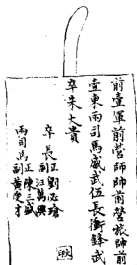 前壹軍前營師帥前營旅帥前
壹東兩司馬威武伍長衝鋒武
卒朱大貴
卒長 正劉必璔 副汪萬興
兩司馬 正陳三盛 副黄受才